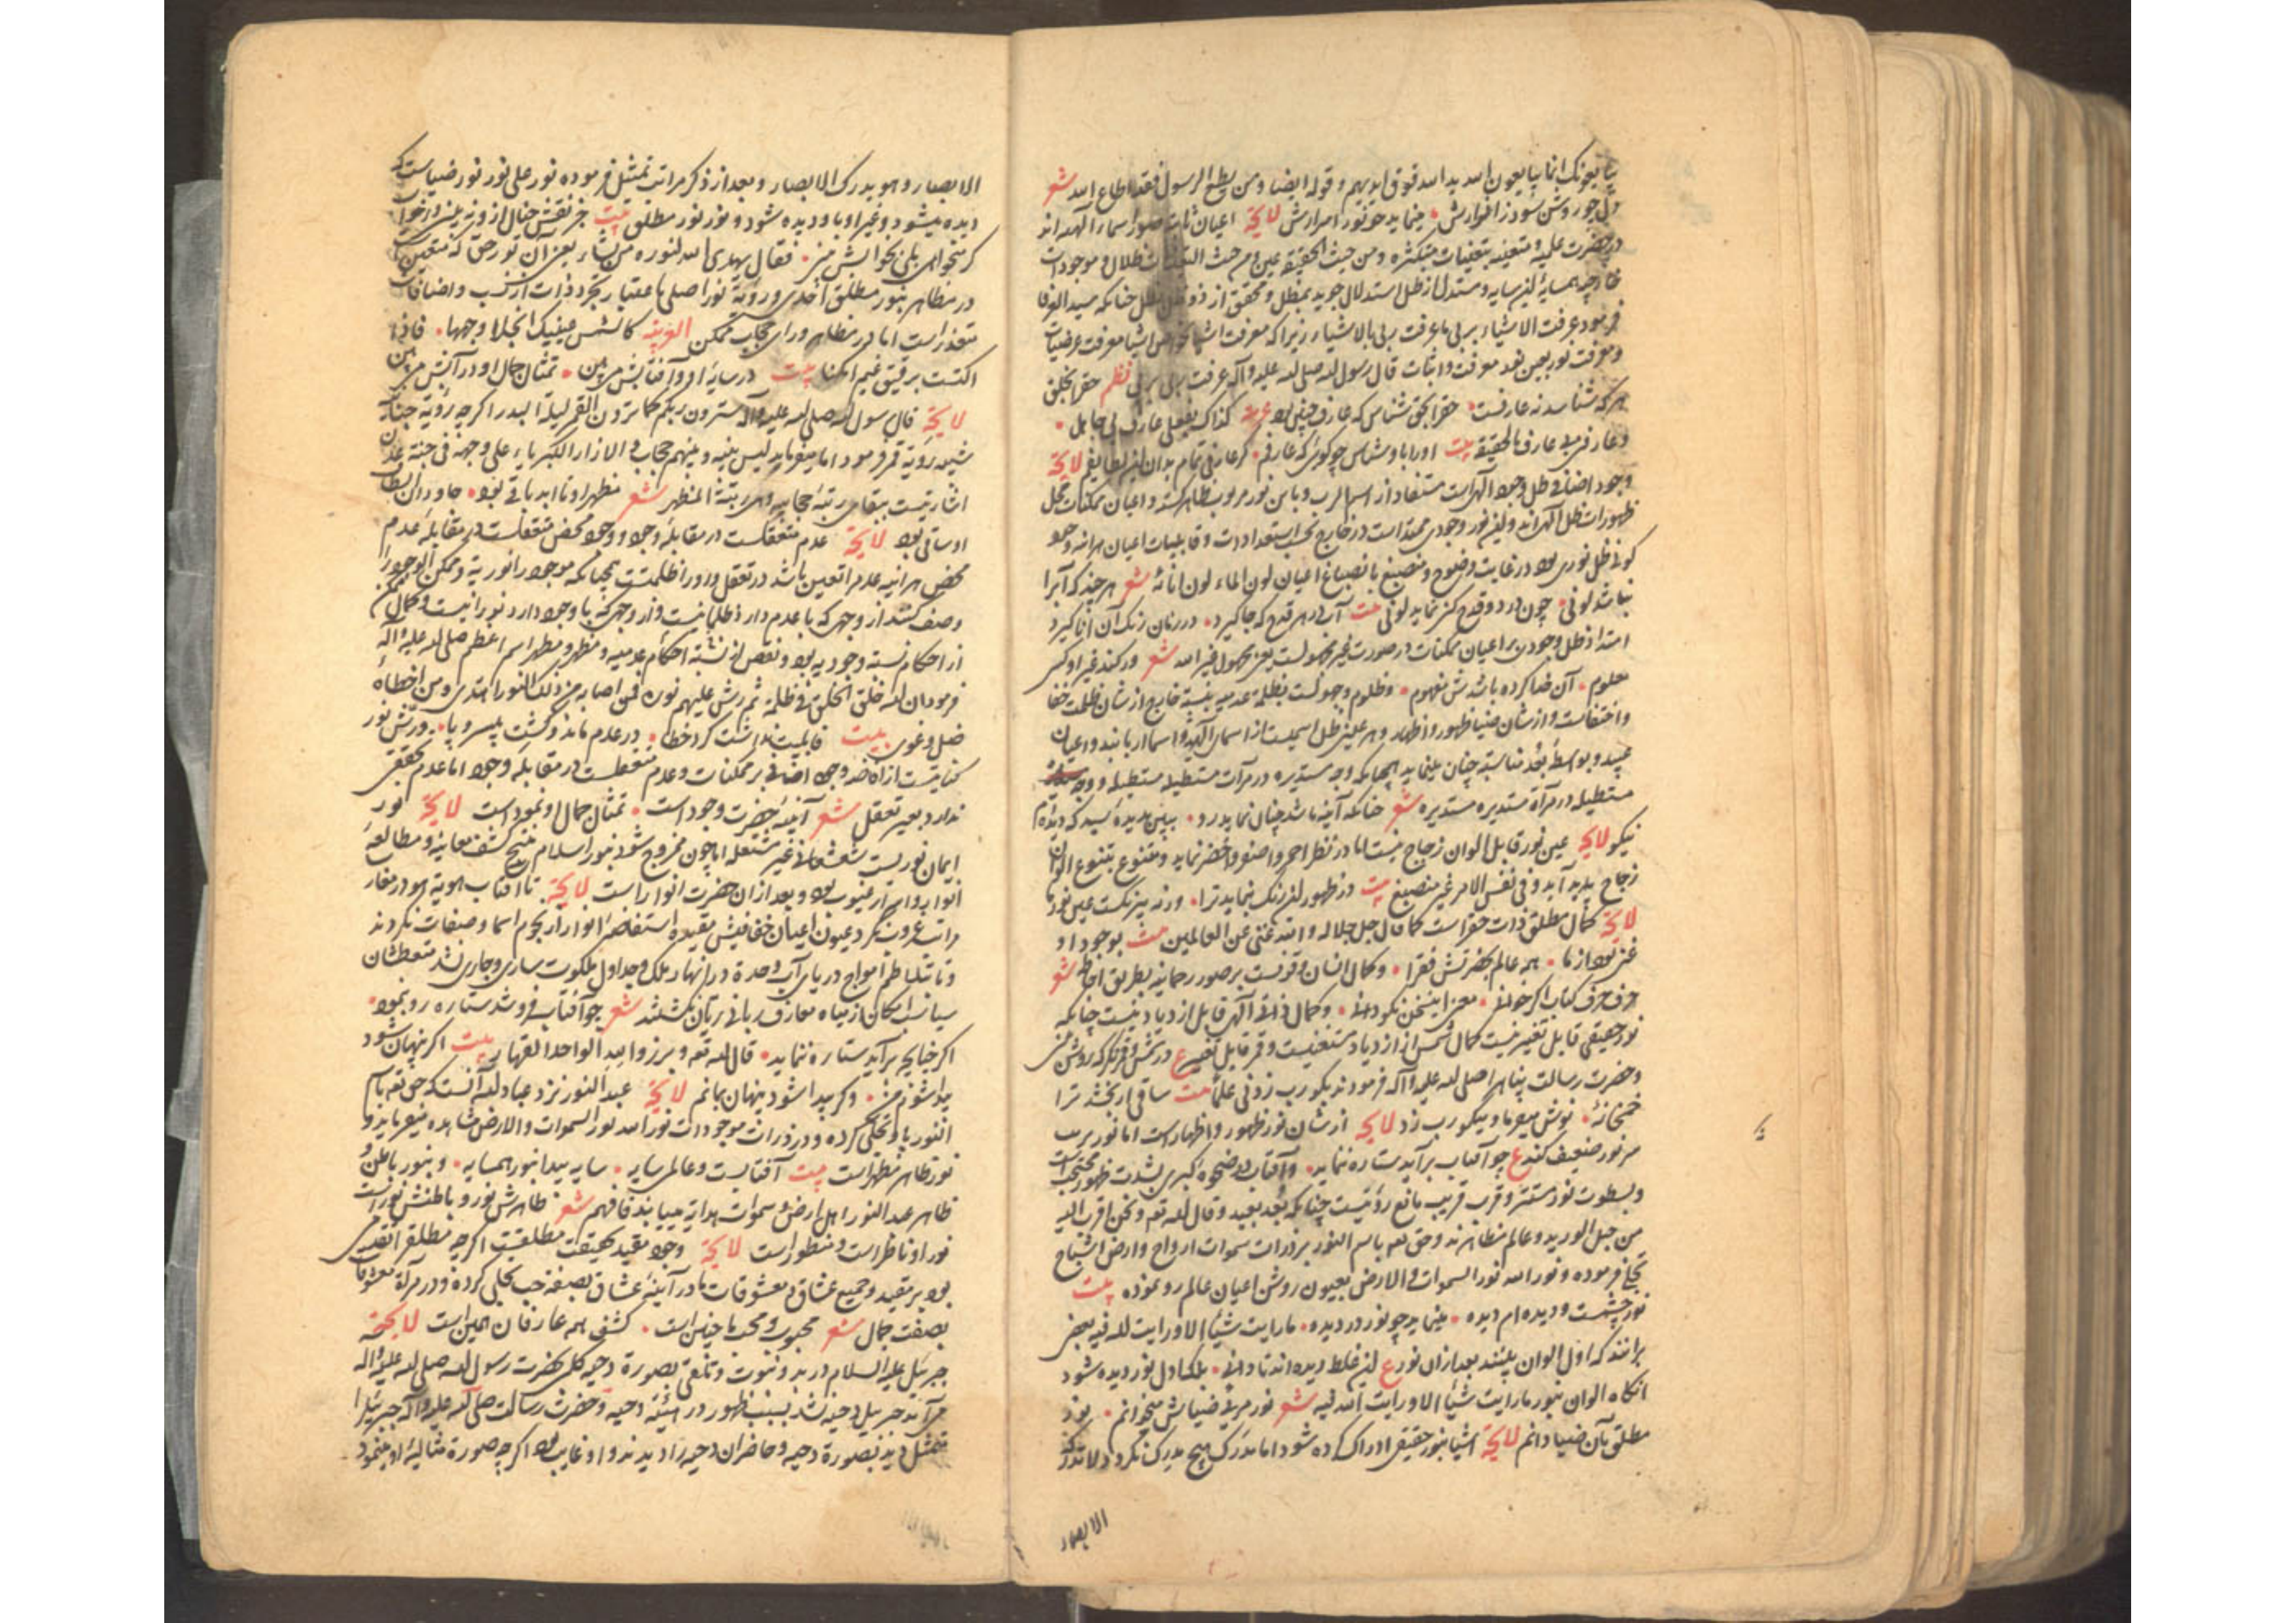 یبایعونک انما یبایعون الله ید الله فوق ایدیهم و قوله ایضا و من یطع الرسول فقد اطاع الله شعر
دل چو روشن شود ز انوارش مینماید چو نور اسرارش لایحة اعیان ثابته صور اسماء الهیه‌اند
در حضرت علمیه و متعینه بتعینات متکثره و من حیث الحقیقه عین و من حیث التعینات ظلال و موجودات
خارجیه همسایه این سایه و مستدل از ظل استدلال جوید بمظل و محقق از ذو ظل بظل چنانکه سید العرفا
فرمود عرفت الاشیاء بربی ما عرفت ربی بالاشیاء زیرا که معرفت اشیا معرفت عرضیات
و معرفت نور بعین بعد معرفت و اثبات قال رسول الله صلی الله علیه و آله عرفت ربی بربی نظم حق را بخلق
هر که شناسد نه عارفست حق را بحق شناس که عارف چنین بود عربیه کذاک بفعلی عارف بی جاهل
و عارف بی عارف بالحقیقة بیت او را باو شناس چو گوئی که عارفم گر عارفی تمام بدان این لطایفم لایحة
وجود اضافی ظل وجود الهی است مستفاد از اسم الرب و باین نور مربوب ظاهر گشته و اعیان ممکنات محل
ظهورات ظل الهی‌اند و این نور وجودی ممتد است در خارج بحسب استعدادات و قابلیات اعیان هر آینه وجود
کونی ظل نوری بود در غایت وضوح و منصبغ بانصباغ اعیان لون الماء لون انائه شعر هر چند که آب را
نباشد لونی چون در دو قدح کنی نماید لونی بیت آبی در هر قدح که جا گیرد در زمان رنگ آن انا گیرد
امتداد ظل وجودی بر اعیان ممکنات در صورت غیر مجهولست یعنی مجهول غیر الله شعر ور کند غیر او کسی
معلوم آن خطا کرده باشدش مفهوم و ظلوم و جهولست بظلمة عدمیه بنسبة خارج از شان ظلمت خفا
و اختفاست و از شان ضیا ظهور و اظهار و هر عینی ظل اسمیست از اسمای الهیه و اسما اربابند و اعیان
عبید و بواسطه بعد مناسبة چنان مینماید همچنانکه وجه مستدیره در مرآت مستطیله مستطیله و وجه
مستطیله در مرآة مستدیره مستدیره شعر چنانکه آینه باشد چنان نماید رو ببین بدیده سید که دیده‌ام
نیکو لایحة عین نور قابل الوان زجاج نیست اما در نظر احمر و اصفر و اخضر نماید و متنوع بتنوع الوان
زجاج پدید آید و فی نفس الامر غیر منصبغ بیت در ظهور این رنگ بنماید ترا ورنه بیرنگست عین نور ما
لایحة کمال مطلق ذات حق راست کما قال جل جلاله و الله غنی عن العالمین بیت بوجود او
غنی بود از ما همه عالم بحضرتش فقرا و کمال انسان موقوفست بر صور رحمانیه بطریق احاطه شعر
حرف حرف کتاب اگر خوانی معنی این سخن نکو دانی و کمال ذاتی الهی قابل ازدیاد نیست چنانکه
نور حقیقی قابل تغییر نیست کمال شمس از ازدیاد مستغنیست و قمر قابل تغییر ع در شمس و قمر نگر که روشن بینی
و حضرت رسالت پناهی را صلی الله علیه و آله فرمودند بگو رب زدنی علما بیت ساقی ار بخشد ترا
خمخانهٔ نوش میفرما و میگو رب زد لایحة از شان نور ظهور و اظهار است اما نور
مر نور ضعیف کند ع چو آفتاب برآید ستاره ننماید و آفتاب در ضحوه کبری بشدت ظهور محتجب است
و بسطوت نور مستتر و قرب قریب مانع رؤیتست چنانکه بعد بعید و قال الله تعه و نحن اقرب الیه
من حبل الورید و عالم مظاهرند و حق تعه باسم النور بر ذرات سموات ارواح و ارض اشباح
تجلی فرموده و نور الله نور السموات و الارض بعیون روشن اعیان عالم رو نموده بیت
نور چشمست و دیده‌ام دیده مینماید چو نور در دیده ما رایت شیأ الا و رایت الله فیه بعضی
برانند که اول الوان بینند بعد ازان نور ع این غلط دیده‌اند تا دانی بلکه اول نور دیده شود
آنگاه الوان بنور ما رایت شیأ الا و رایت الله فیه شعر نور مرئی ضیاش میخوانم نور
مطلق بآن ضیا دانم لایحة اشیا بنور حقیقی ادراک کرده شود اما مدرک هیچ مدرک نگردد لا تدرکه
الابصار
الابصار و هو یدرک الابصار و بعد از ذکر مراتب تمثیل فرموده نور علی نور نور ضیاست که
دیده میشود و غیر او باو دیده شود و نور نور مطلق بیت جز نقش خیال او نه بینی در خواب
گر میخواهی بلی بخوابش می‌بین فقال یهدی الله لنوره من یشاء یعنی آن نور حق که متعینست
در مظاهر بنور مطلق احدی و رویة نور اصلی باعتبار تجرد ذات از نسب و اضافات
متعذر است اما در مظاهر ورای حجاب ممکن العربیه کالشمس یمنعک اجتلاؤک وجهها فاذا
اکتست برقیق غیم امکنا بیت در سایهٔ او و آفتابش می‌بین تمثال جمال او در آبش می‌بین
لایحة قال رسول الله صلی الله علیه و آله سترون ربکم کما ترون القمر لیلة البدر اگر چه رؤیة جنانی
تشبیه رویة قمر فرمود اما میفرماید لیس بینه و بینهم حجاب الا ازار الکبریاء علی وجهه فی جنة عدن
اشارتیست ببقای رتبهٔ حجابیه و هی رتبة المظهر شعر مظهر او تا ابد باقی بود جاودان الطاف
او ساقی بود لایحة عدم متعقلست در مقابله وجود و وجود محض متعقلست در مقابلهٔ عدم
محض هر آینه عدم را تعین باشد در تعقل و او را ظلمتست همچنانکه موجود را نوریه و ممکن الوجود را
وصف کنند از وجهی که با عدم دارد ظلمانیست و از وجهی که با وجود دارد نورانیست و کمال ممکن
از احکام نسبة وجودیه بود و نقص از نسبة احکام عدمیه و مظهر و مظهر اسم اعظم صلی الله علیه و آله
فرمود ان الله خلق الخلق فی ظلمة ثم رش علیهم نوره فمن اصابه من ذلک النور اهتدی و من اخطاه
ضل و غوی بیت قابلیت نداشت کرد خطا در عدم ماند و گشت بی سر و پا و رش نور
کنایتیست از افاضه وجود اضافی بر ممکنات و عدم متعقلست در مقابله وجود اما عدم تحققی
ندارد بغیر تعقل شعر آینهٔ حضرت وجود است تمثال جمال او نمود است لایحة نور
ایمان نوریست شعشعانی غیر مشتعله اما چون ممزوج شود بنور اسلام منتج کشف معاینه و مطالعهٔ
انوار و اسرار غیوب بود و بعد ازان حضرت انوار راست لایحة تا آفتاب هویة هو در مغارب
مراتب غروب نکرد عیون اعیان خفافیش مقیده استفاضهٔ انوار از نجوم اسما و صفات نکردند
و تا بتلاطم امواج دریای آب وحدة در انهار ملک و جداول ملکوت ساری و جاری نشد متعطشان
بیابان امکان از میاه معارف ربانی ریان نگشتند شعر چو آفتاب فرو شد ستاره رو بنمود
اگر چنانچه برآید ستاره ننماید قال الله تعه و برزوا لله الواحد القهار بیت اگر پنهان شود
پیدا شوم من وگر پیدا شود پنهان بمانم لایحة عبد النور نزد عباد الله آنست که حق تعه باسم
النور باو تجلی کرده و در ذرات موجودات نور الله نور السموات و الارض مشاهده میفرماید و
نور ظاهر مظهر است بیت آفتابیست و عالمی سایه سایه پیدا بنور همسایه و بنور باطن و
ظاهر عبد النور اهل ارض و سموات هدایة مییابند فافهم شعر ظاهرش نور و باطنش نور است
نور او ناظر است و منظور است لایحة وجود مقید بحقیقت مطلقیست اگر چه مطلق را تقدمی
بود بر مقید و جمیع عشاق و معشوقات را در آینهٔ عشاق بصفة حب تجلی کرده و در مرآة معشوقات
بصفت جمال شعر محبوب و محب ما چنین است کشف همه عارفان همین است لایحة
جبرئیل علیه السلام در بدو نبوت و تلقی بصورة دحیه کلبی بحضرت رسول الله صلی الله علیه و آله
می‌آمد جبرئیل دحیه نشد بسبب ظهور در هیئة دحیه و حضرت رسالت صلی الله علیه و آله جبرئیل را
متمثل دید بصورة دحیه و حاضران دحیه را دیدند و او غایب بود اگر چه صورة مثالیهٔ او مینمود